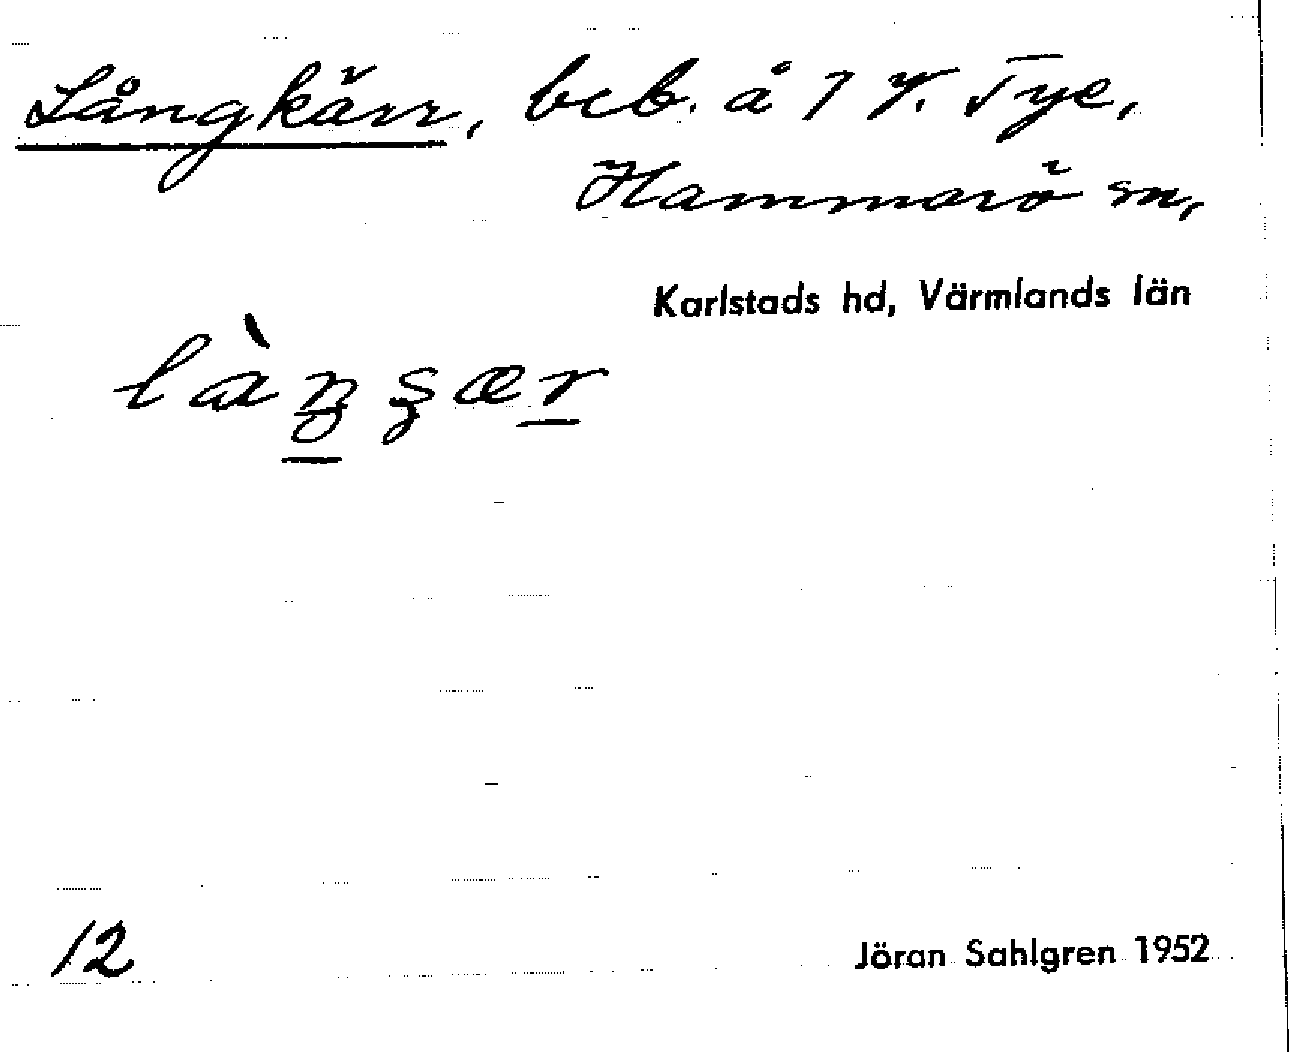 Långkärr, beb. å 1 4. Tye,
Hammarö sn,
Karlstads hd, Värmlands län
12
Jöran Sahlgren 1952